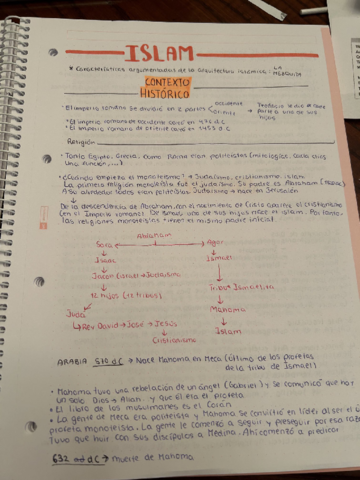 ISLAM
* Características argumentadas de la arquitectura islámica: LA MEZQUITA
CONTEXTO
HISTÓRICO
• El imperio romano se dividió en 2 partes occidente
oriente
→ Teodosio le dio a cada
parte a uno de sus
hijos
• El imperio romano de occidente cayó en 476 d.C
• El imperio romano de oriente cayó en 1453 d.C
Religión
• Tanto Egipto, Grecia, como Roma eran politeístas
¿Cuándo empieza el monoteísmo? → Judaísmo, cristianismo, islam
La primera religión monoteísta fue el judaísmo. Su padre es Abraham
A su alrededor todos eran politeístas. Judaísmo → nace en Jerusalén
De la descendencia de Abraham, con el nacimiento de Cristo aparece el cristianismo
(en el Imperio romano). De Ismael uno de sus hijos nace el islam. Por tanto,
las religiones monoteístas tienen el mismo padre inicial.
Abraham
Sara Agar
Isaac Ismael
Jacob (Israel) → Judaísmo
12 hijos (12 tribus) Tribu Ismaelita
Judá Mahoma
→ Rey David → José → Jesús Islam
Cristianismo
ARABIA 570 d.C → Nace Mahoma en Meca (último de los profetas
de la tribu de Ismael)
• Mahoma tuvo una rebelación de un ángel (Gabriel) y se comunicó que hay
un solo Dios → Alá, y que él era el profeta
• El libro de los musulmanes es el Corán
• La gente de Meca era politeísta y Mahoma se convirtió en líder al ser el
profeta monoteísta. La gente le comenzó a seguir y perseguir por esa razón
Tuvo que huir con sus discípulos a Medina. Ahí comenzó a predicar
632 d.C → Muerte de Mahoma